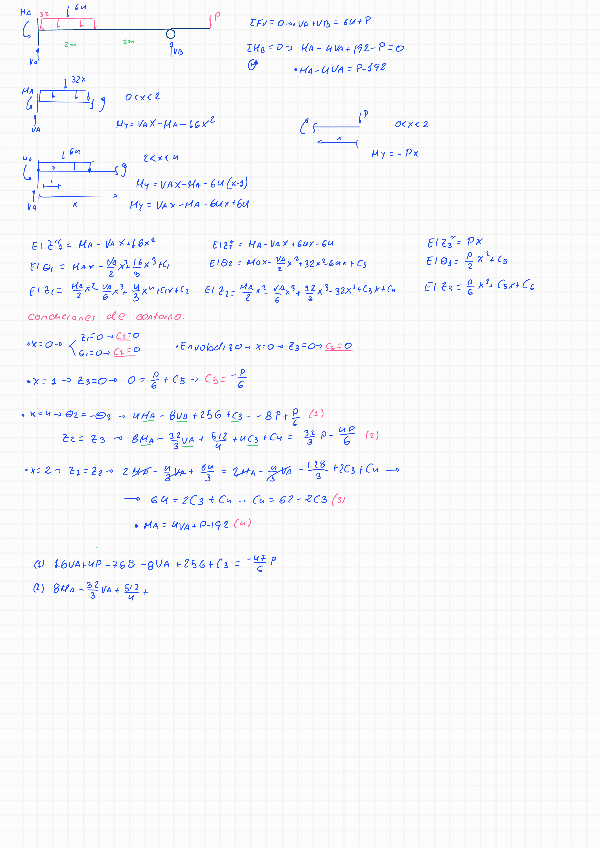 MA 32 64 P
ΣFV = 0 → VA + VB = 64 + P
2m 2m
VA VB
ΣMB = 0 → MA - 4VA + 192 - P = 0
• MA - 4VA = P - 192
32x
MA 0 < x < 2
VA
My = VAx - MA - 16x²
P 0 < x < 2
x
My = -Px
64 2 < x < 4
My = VAx - MA - 64(x-1)
VA x
My = VAx - MA - 64x + 64
EIZ''1 = MA - VAx + 16x² EIZ''2 = MA - VAx + 64x - 64 EIZ''3 = Px
EIθ1 = MAx - VA/2 x² + 16/3 x³ + C1 EIθ2 = MAx - VA/2 x² + 32x² - 64x + C3 EIθ3 = P/2 x² + C5
EIZ1 = MA/2 x² - VA/6 x³ + 4/3 x⁴ + C1x + C2 EIZ2 = MA/2 x² - VA/6 x³ + 32/3 x³ - 32x² + C3x + C4 EIZ3 = P/6 x³ + C5x + C6
Condiciones de contorno.
• x = 0 → Z1 = 0 → C2 = 0
θ1 = 0 → C1 = 0
• En voladizo → x = 0 → Z3 = 0 → C6 = 0
• x = 1 → Z3 = 0 → 0 = P/6 + C5 → C5 = -P/6
• x = 4 → θ2 = -θ3 → 4MA - 8VA + 256 + C3 = -8P + P/6 (1)
Z2 = Z3 → 8MA - 32/3 VA + 512/4 + 4C3 + C4 = 32/3 P - 4P/6 (2)
• x = 2 → Z1 = Z2 → 2MA - 4/3 VA + 64/3 = 2MA - 4/3 VA - 128/3 + 2C3 + C4 →
→ 64 = 2C3 + C4 → C4 = 62 - 2C3 (3)
• MA = 4VA + P - 192 (4)
(1) 16VA + 4P - 768 - 8VA + 256 + C3 = -47/6 P
(2) 8MA - 32/3 VA + 512/4 +